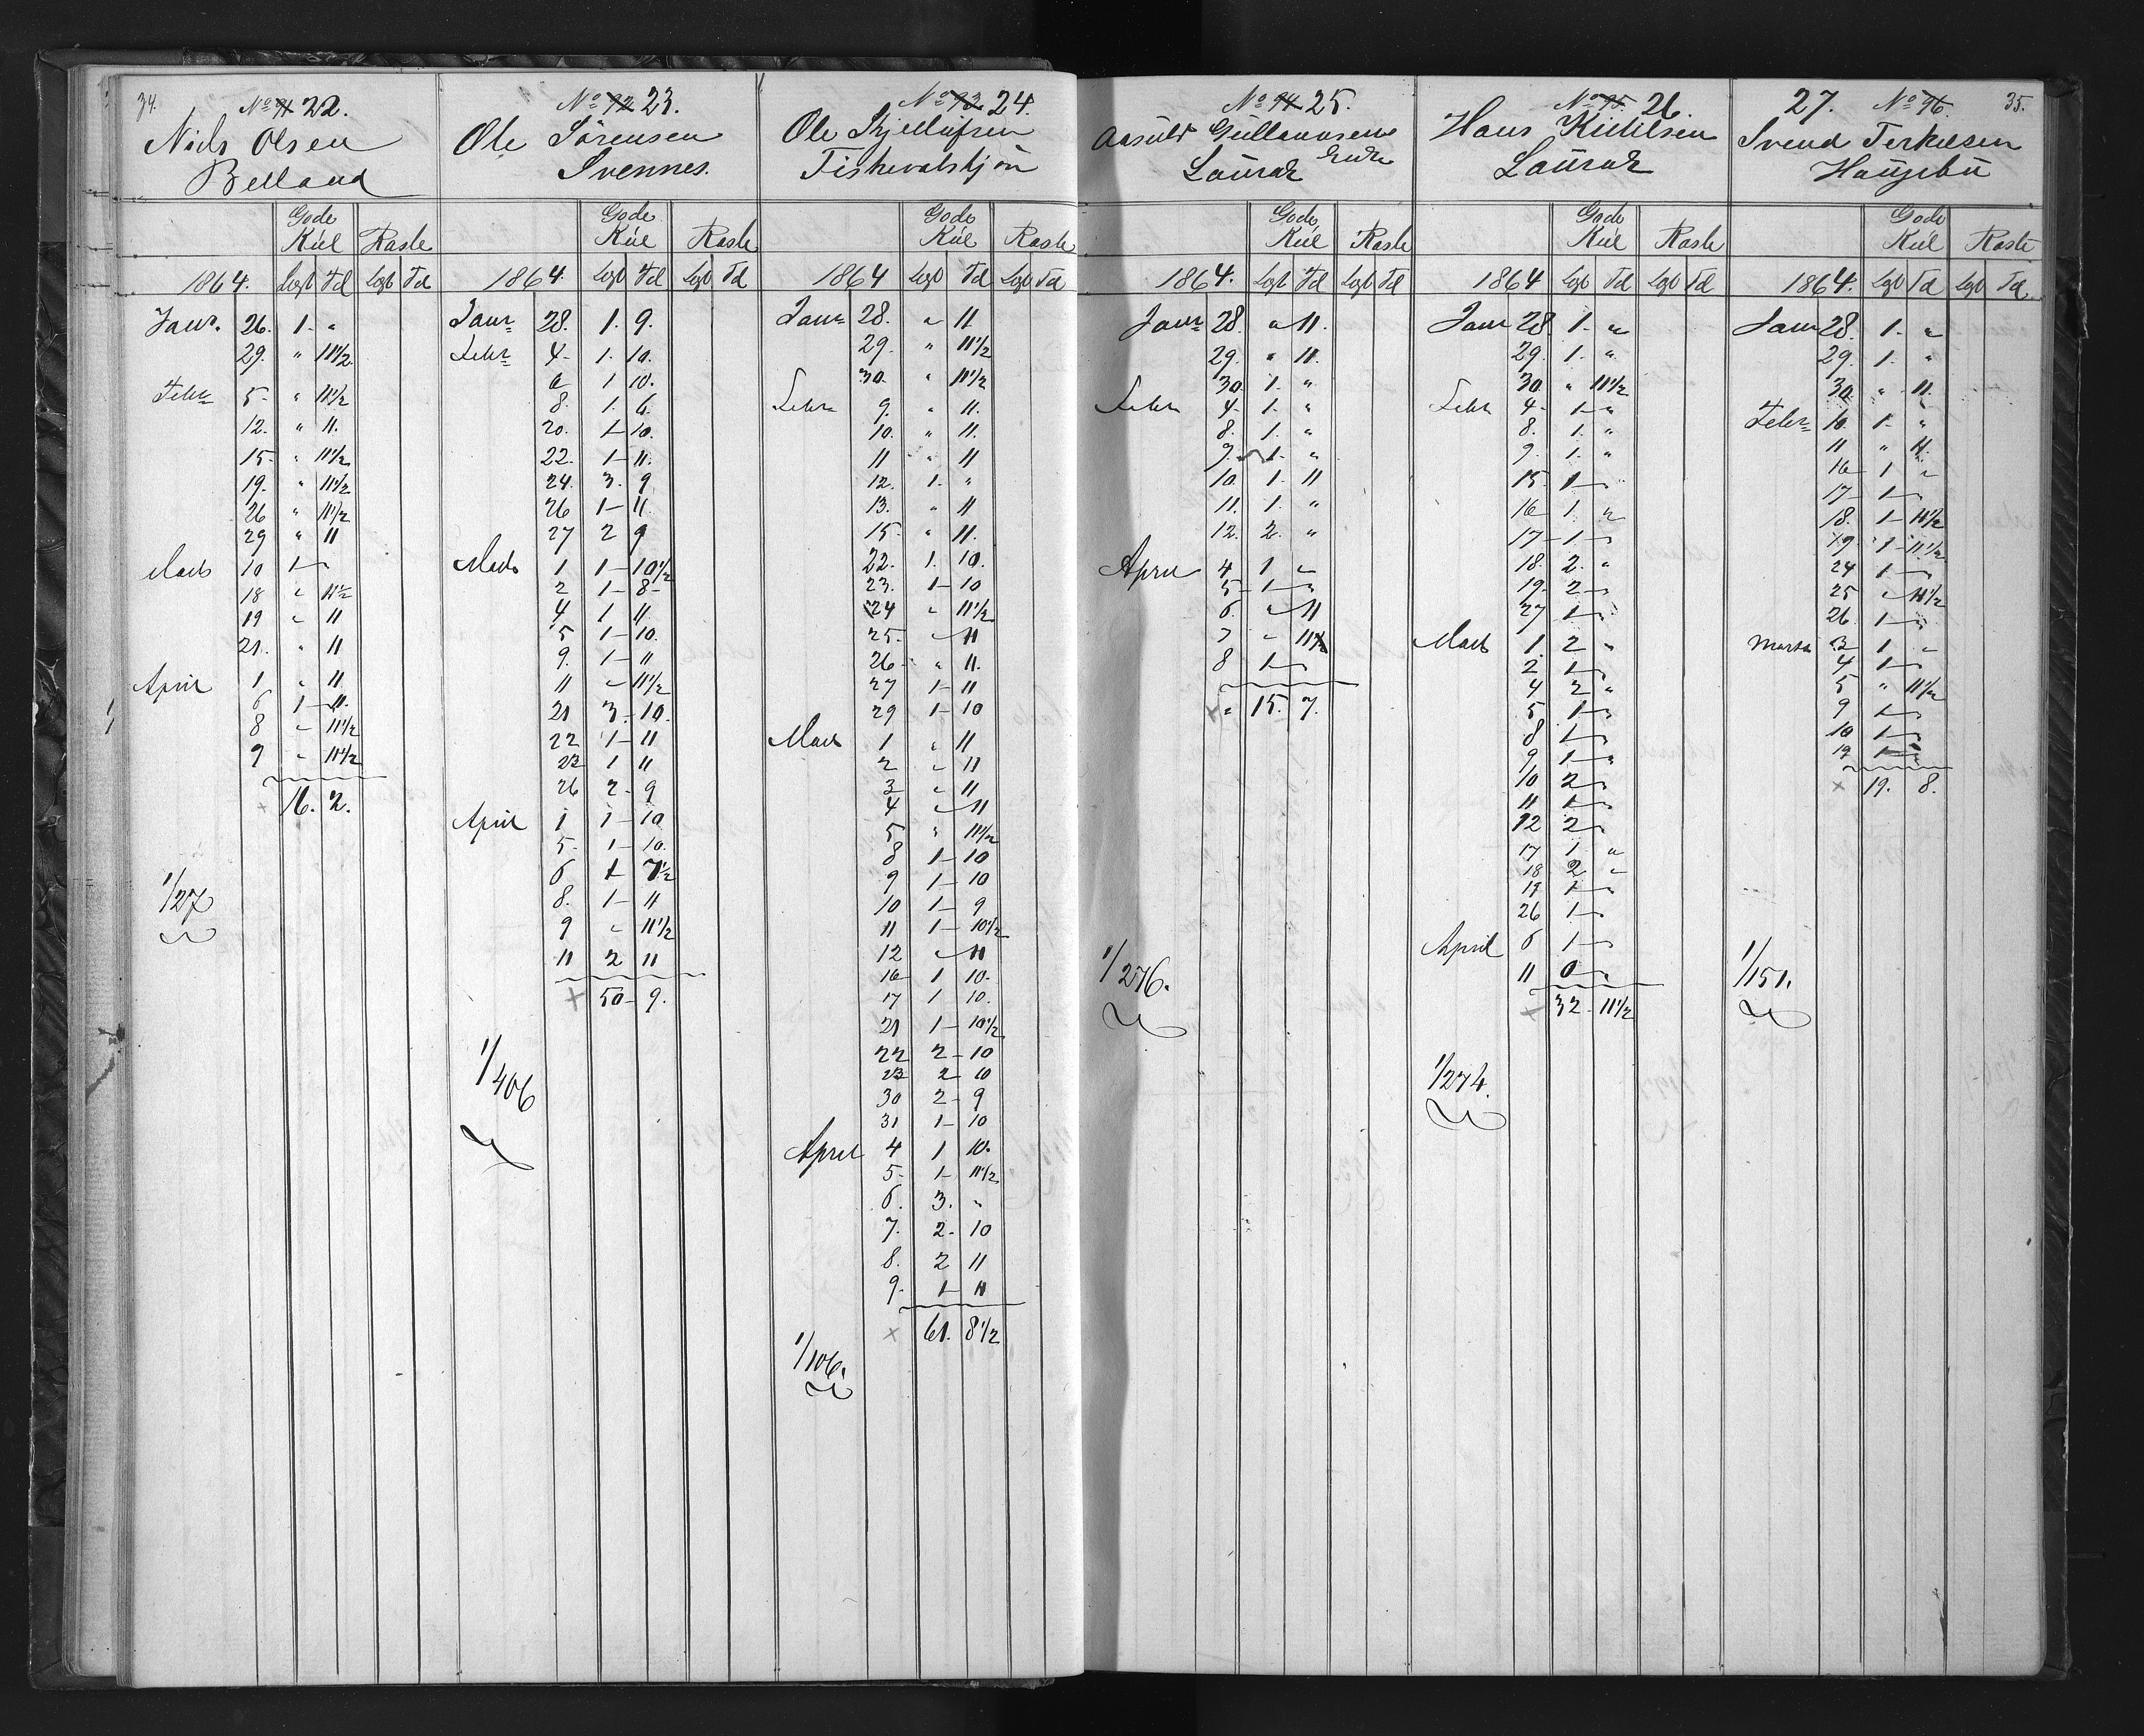 34.
No 91 22.
Niels Olsen
Belland
Gode
Kúl Raske
1864. Legt Td Legt Td
Janr. 26. 1. "
29. " 11 1/2
Febr 5. " 11 1/2
12. " 11.
15. " 11 1/2
19. " 11 1/2
26 " 11 1/2
29 " 11
Marts 10 1 "
18 " 11 1/2
19 " 11
21. " 11
April 1 " 11
6 1 11.
8 " 11 1/2
9 " 11 1/2
+ 16. 2.
1/27
No 92 23.
Ole Sörensen
Svennes.
Gode
Kúl Raske
1864. Legt Td Legt Td
Janr 28. 1. 9.
Febr 4. 1. 10.
6 1 10.
8. 1. 6.
20. 1 10.
22. 1 11.
24. 3. 9
26 1 11.
27 2 9
Marts 1 1 10 1/2
2 1 8
4 1 11.
5 1 10.
9. 1 11
11 " 11 1/2
21 3 10.
22 1 11
23 1 11
26 2 9
April 1 1 10
5 1 10.
6 1 7 1/2
8. 1 11
9 " 11 1/2
11 2 11
+ 50 9.
1/406
No 93 24.
Ole Skjellufsen
Fiskevatskjön
Gode
Kúl Raske
1864 Legt Td Legt Td
Janr 28. " 11
29. " 11 1/2
30. " 11 1/2
Febr 9. " 11.
10. " 11.
11 " 11
12. 1. "
13. " 11
15. " 11.
22. 1. 10.
23. 1 10
24 " 11 1/2
25. " 11
26 " 11.
27 1 11
29 1 10
Marts 1 " 11
2 " 11
3 " 11
4 " 11
5 " 11 1/2
8 1 10
9 1 10
10 1 9
11 1 10 1/2
12 " 11
16 1 10.
17 1 10.
21 1 10 1/2
22 2 10
23 2 10
30 2 9
31 1 10
April 4 1 10.
5 1 11 1/2
6. 3. "
7. 2. 10
8. 2 11
9. 1 11
x 61. 8 1/2
1/106.
No 94 25.
Aasuld Gullauvsens
Enke
Laurak
Gode
Kúl Raske
1864. Legt Td Legt Td
Janr 28. " 11.
29. " 11.
30 1. "
Febr 4. 1. "
8. 1. "
9. 1. "
10. 1. 11
11. 1. "
12. 2. "
April 4 1 "
5 1 "
6. " 11
7 " 11 1/2
8 1 "
x 15. 7.
1/276.
No 95. 26.
Hans Kittilsen
Laurak
Gode
Kúl Raske
1864 Legt Td Legt Td
Janr 28. 1. "
29. 1. "
30. " 11 1/2
Febr 4. 1 "
8. 1. "
9. 1. "
15. 1 "
16 1. "
17 1 "
18. 2. "
19. 2 "
27 1 "
Marts 1. 2 "
2. 1 "
4 2 "
5 1 "
8 1 "
9 1 "
10 2 "
11 1 "
12 2 "
17 1. "
18 2 "
19 1 "
26 1 "
April 6 1 "
11 0 "
x 32 11 1/2
1/274.
35.
27. No 96.
Svend Terkelsen
Haugebu
Gode
Kúl Raske
1864. Legt Td Legt Td
Janr 28. 1. "
29. 1. "
30. " 11.
Febr 10. 1. "
11 " 11.
16 1 "
17 1 "
18. 1 11 1/2
19. 1 11 1/2
24 1 "
25 " 11 1/2
26. 1 "
Marts 2 1 "
4 1 "
5 " 11 1/2
9 1 "
10 1 "
12 1 "
x 19. 8.
1/151.